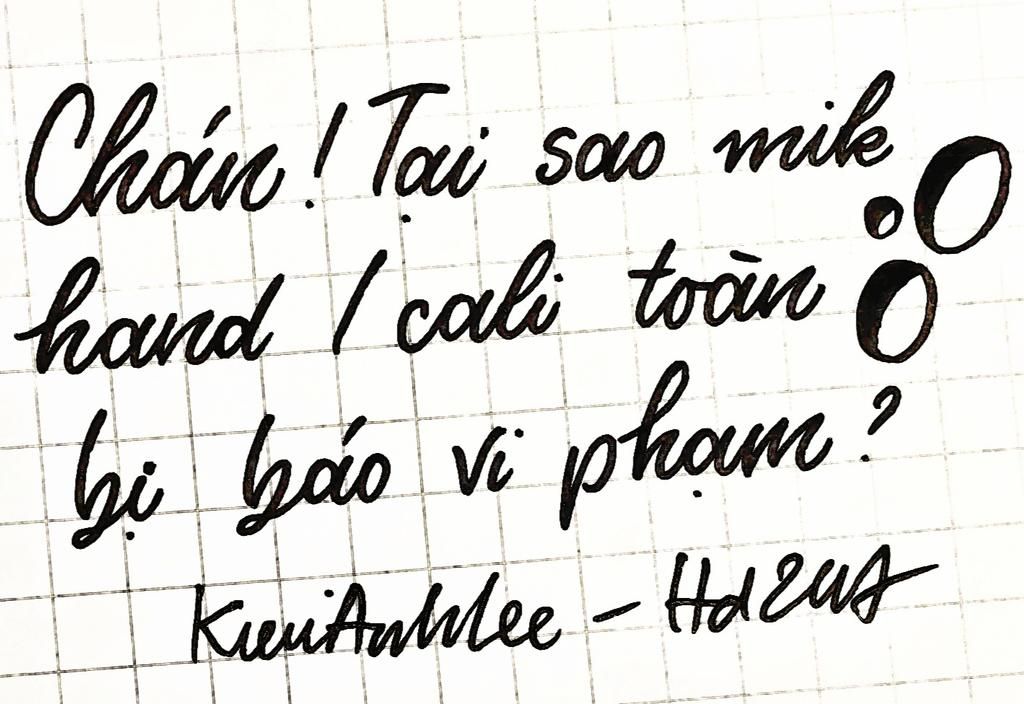 Chán! Tại sao mik
hand / cali toàn
bị báo vi phạm?
KieuAnhlee -